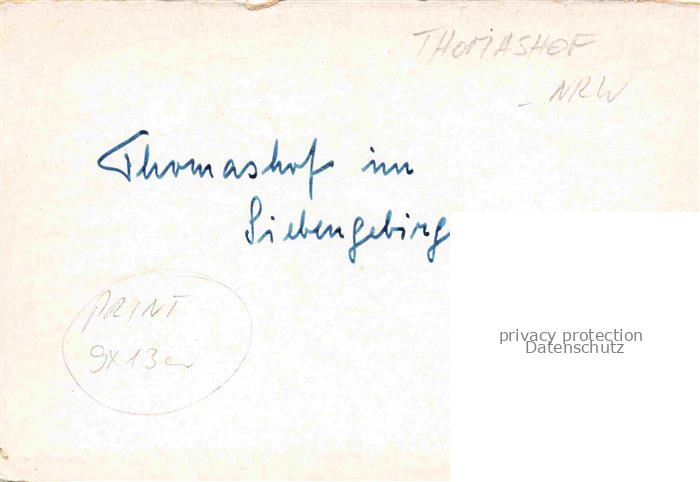 THOMASHOF
- NRW
Thomashof im
Siebengebirg
PRINT
9X13cm
privacy protection
Datenschutz